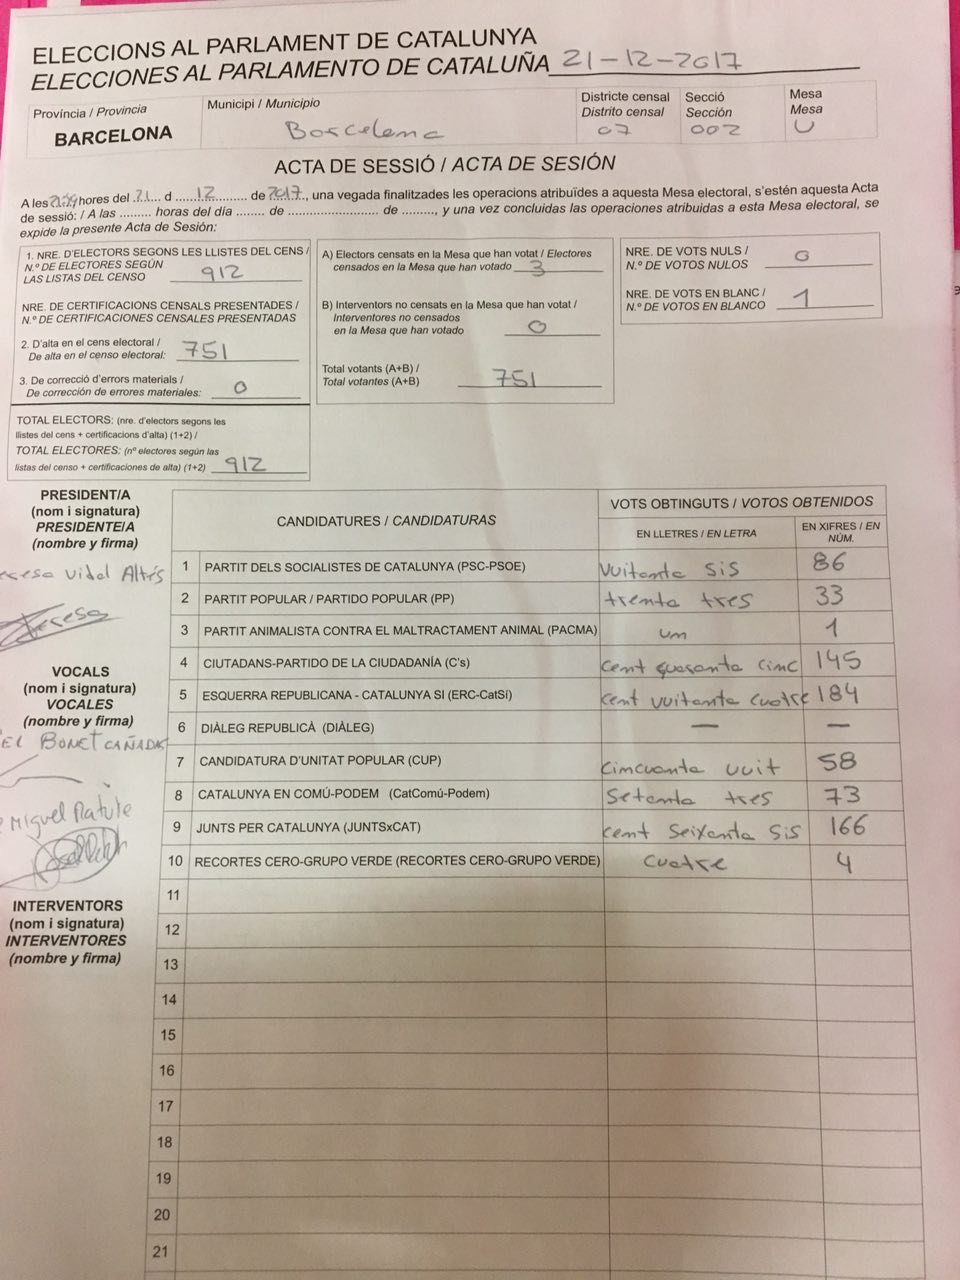 ELECCIONS AL PARLAMENT DE CATALUNYA
ELECCIONES AL PARLAMENTO DE CATALUÑA 21-12-2017
Província / Provincia
BARCELONA
Municipi / Municipio
Barcelona
Districte censal
Distrito censal
07
Secció
Sección
002
Mesa
Mesa
U
ACTA DE SESSIÓ / ACTA DE SESIÓN
A les hores del 21 d 12 de 2017, una vegada finalitzades les operacions atribuïdes a aquesta Mesa electoral, s'estén aquesta Acta
de sessió: / A las ......... horas del día ....... de ........................ de ........, y una vez concluidas las operaciones atribuidas a esta Mesa electoral, se
expide la presente Acta de Sesión:
1. NRE. D'ELECTORS SEGONS LES LLISTES DEL CENS /
N.º DE ELECTORES SEGÚN
LAS LISTAS DEL CENSO 912
NRE. DE CERTIFICACIONS CENSALS PRESENTADES /
N.º DE CERTIFICACIONES CENSALES PRESENTADAS
2. D'alta en el cens electoral /
De alta en el censo electoral: 751
3. De correcció d'errors materials /
De corrección de errores materiales: 0
TOTAL ELECTORS: (nre. d'electors segons les
llistes del cens + certificacions d'alta) (1+2) /
TOTAL ELECTORES: (nº electores según las
listas del censo + certificaciones de alta) (1+2) 912
A) Electors censats en la Mesa que han votat / Electores
censados en la Mesa que han votado 3
B) Interventors no censats en la Mesa que han votat /
Interventores no censados
en la Mesa que han votado 0
Total votants (A+B) /
Total votantes (A+B) 751
NRE. DE VOTS NULS /
N.º DE VOTOS NULOS 0
NRE. DE VOTS EN BLANC /
N.º DE VOTOS EN BLANCO 1
PRESIDENT/A
(nom i signatura)
PRESIDENTE/A
(nombre y firma)
Vidal Altés
Teresa
VOCALS
(nom i signatura)
VOCALES
(nombre y firma)
EL BONET CAÑADA
Miguel Matute
INTERVENTORS
(nom i signatura)
INTERVENTORES
(nombre y firma)
CANDIDATURES / CANDIDATURAS
VOTS OBTINGUTS / VOTOS OBTENIDOS
EN LLETRES / EN LETRA
EN XIFRES / EN
NÚM.
1 PARTIT DELS SOCIALISTES DE CATALUNYA (PSC-PSOE) Vuitanta sis 86
2 PARTIT POPULAR / PARTIDO POPULAR (PP) trenta tres 33
3 PARTIT ANIMALISTA CONTRA EL MALTRACTAMENT ANIMAL (PACMA) un 1
4 CIUTADANS-PARTIDO DE LA CIUDADANÍA (C's) cent quaranta cinc 145
5 ESQUERRA REPUBLICANA - CATALUNYA SI (ERC-CatSí) cent vuitanta cuatre 184
6 DIÀLEG REPUBLICÀ (DIÀLEG) — —
7 CANDIDATURA D'UNITAT POPULAR (CUP) cincuanta vuit 58
8 CATALUNYA EN COMÚ-PODEM (CatComú-Podem) Setanta tres 73
9 JUNTS PER CATALUNYA (JUNTSxCAT) cent Seixanta sis 166
10 RECORTES CERO-GRUPO VERDE (RECORTES CERO-GRUPO VERDE) cuatre 4
11
12
13
14
15
16
17
18
19
20
21